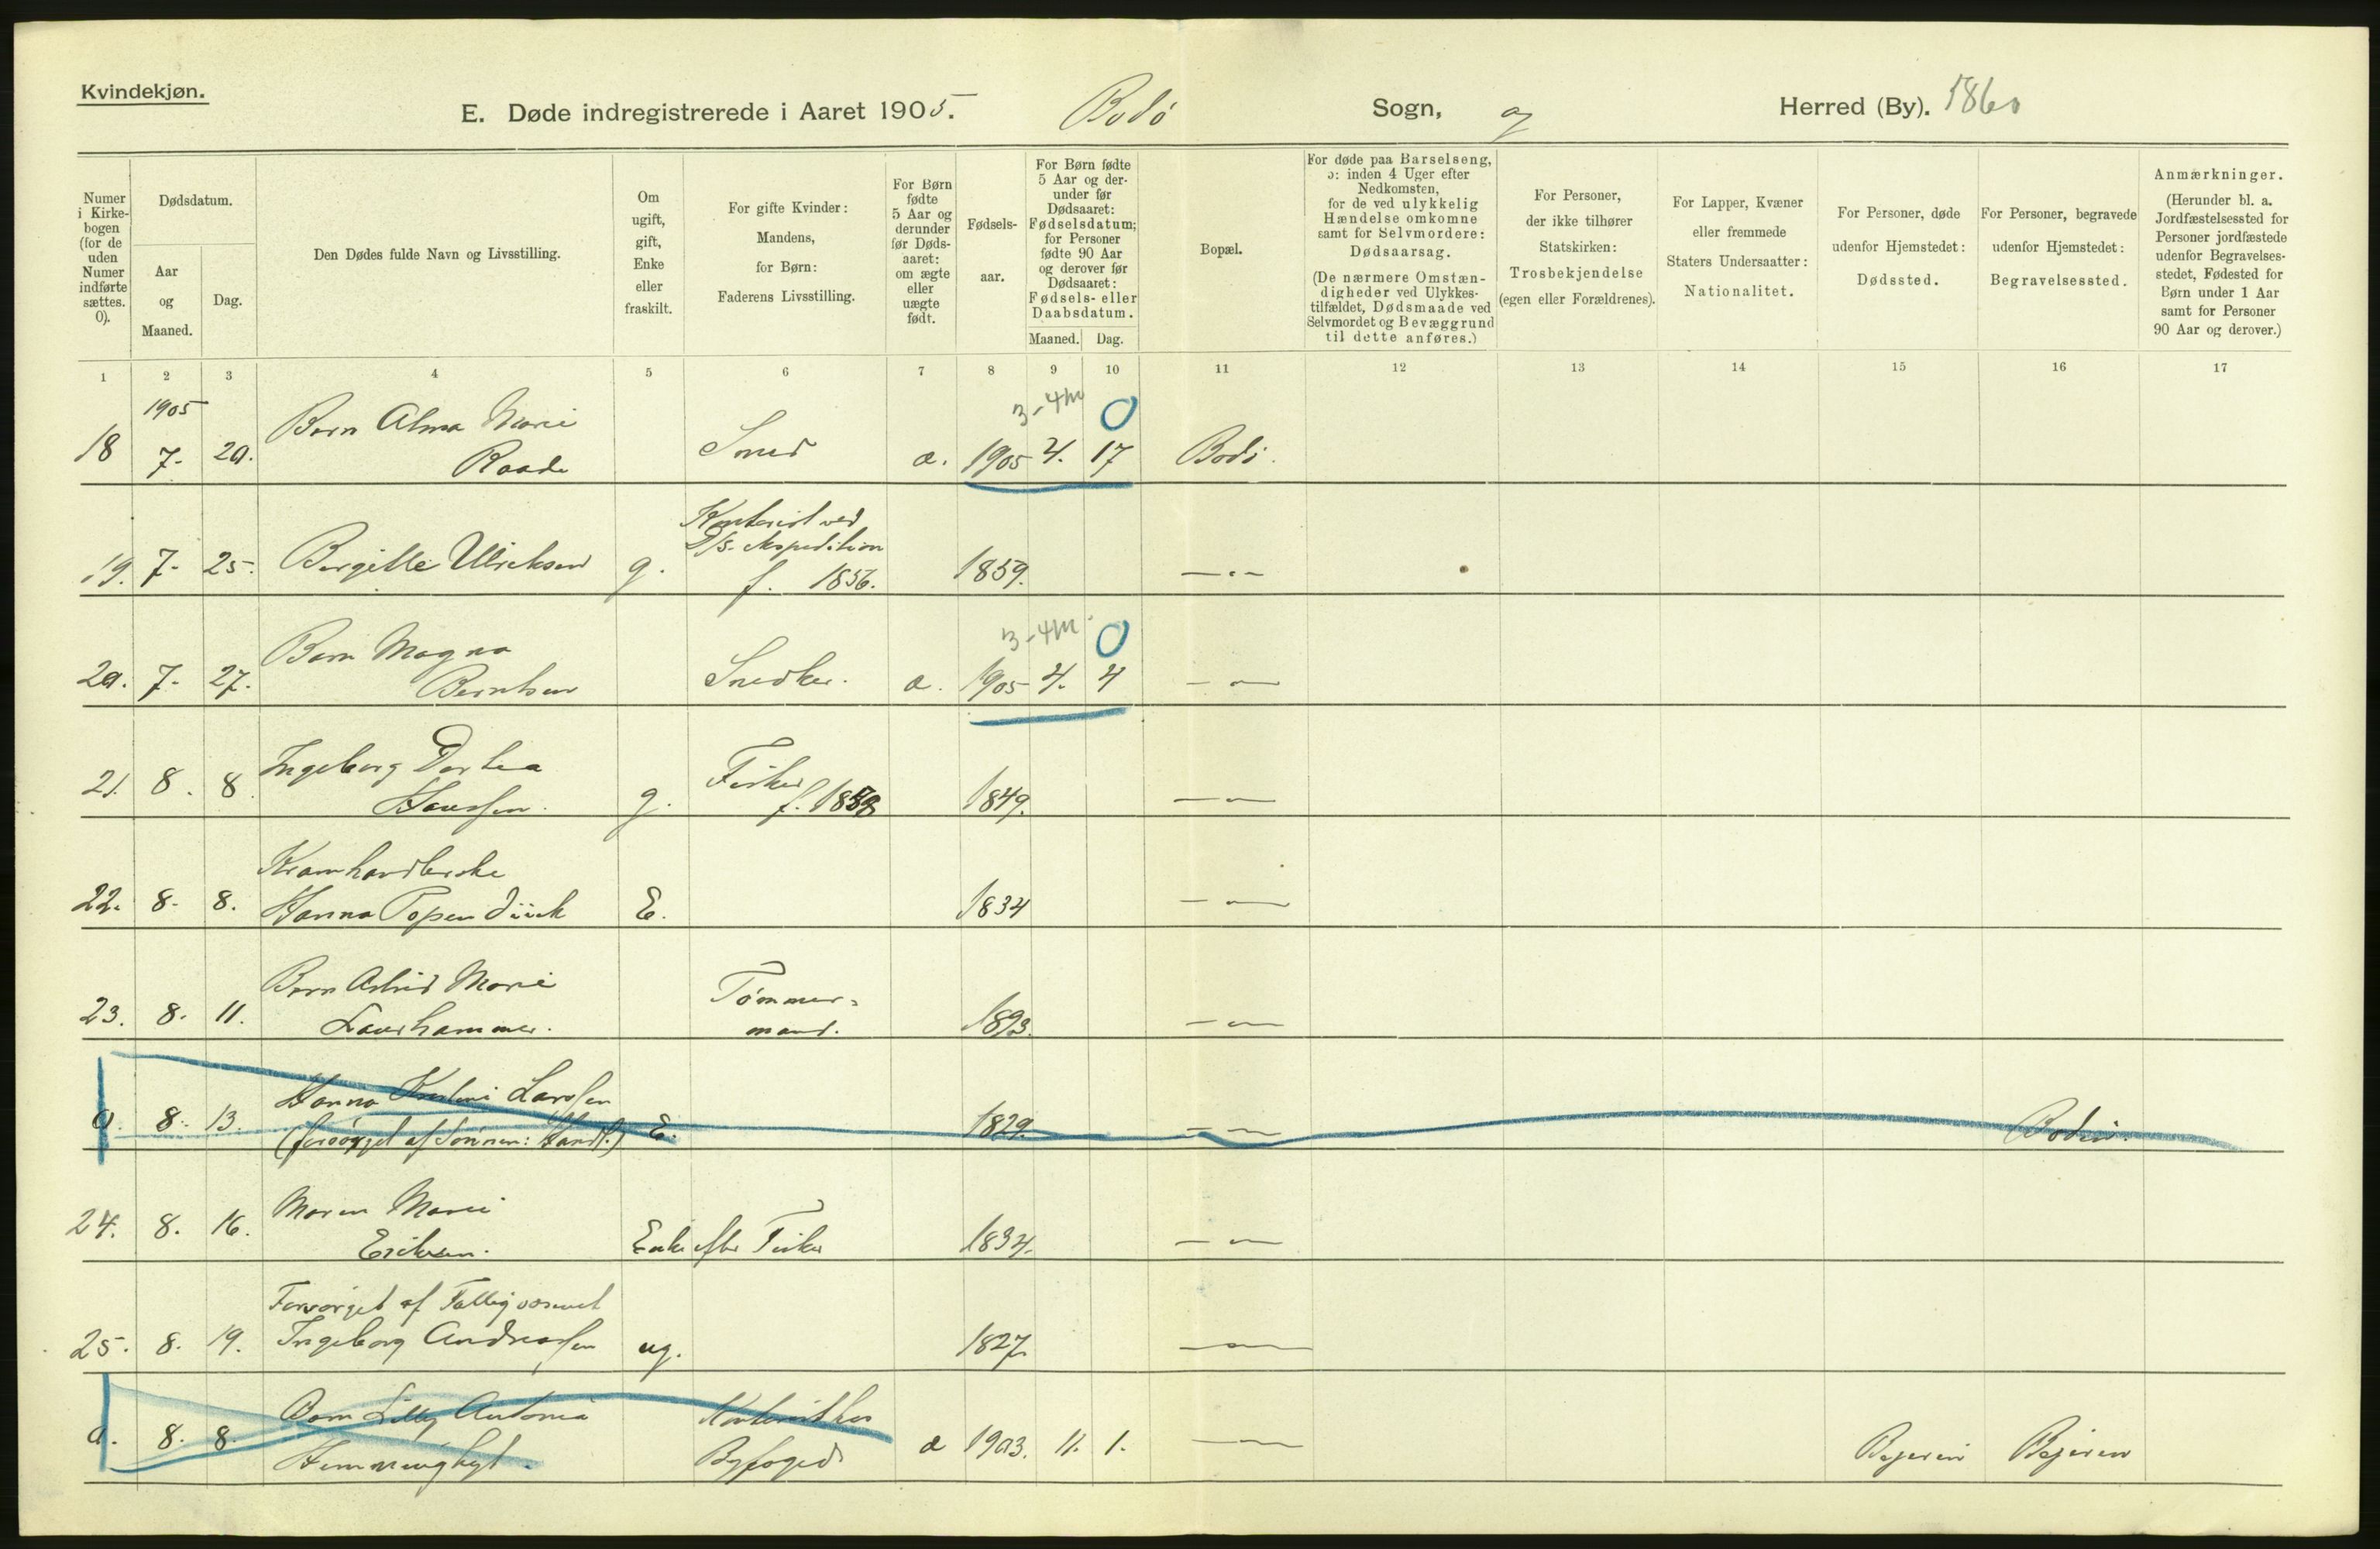 Kvindekjøn.
E. Døde indregistrerede i Aaret 1905. Bodø Sogn, og Herred (By). 1860
Numer i Kirkebogen (for de uden Numer indførte sættes. 0).
Dødsdatum.
Aar og Maaned.
Dag.
Den Dødes fulde Navn og Livsstilling.
Om ugift, gift, Enke eller fraskilt.
For gifte Kvinder: Mandens, for Børn: Faderens Livsstilling.
For Børn fødte 5 Aar og derunder før Dødsaaret: om ægte eller uægte født.
Fødselsaar.
For Børn fødte 5 Aar og derunder før Dødsaaret: Fødselsdatum; for Personer fødte 90 Aar og derover før Dødsaaret: Fødsels- eller Daabsdatum.
Maaned. Dag.
Bopæl.
For døde paa Barselseng, ɔ: inden 4 Uger efter Nedkomsten, for de ved ulykkelig Hændelse omkomne samt for Selvmordere: Dødsaarsag. (De nærmere Omstændigheder ved Ulykkestilfældet, Dødsmaade ved Selvmordet og Bevæggrund til dette anføres.)
For Personer, der ikke tilhører Statskirken: Trosbekjendelse (egen eller Forældrenes).
For Lapper, Kvæner eller fremmede Staters Undersaatter: Nationalitet.
For Personer, døde udenfor Hjemstedet: Dødssted.
For Personer, begravede udenfor Hjemstedet: Begravelsessted.
Anmærkninger. (Herunder bl. a. Jordfæstelsessted for Personer jordfæstede udenfor Begravelsesstedet, Fødested for Børn under 1 Aar samt for Personer 90 Aar og derover.)
1 2 3 4 5 6 7 8 9 10 11 12 13 14 15 16 17
1905 3-4m 0
Barn Alma Marie
18 7. 20. Raade Smed a. 1905 4. 17 Bodø.
Kontorist ved
D/s. Expedition
19. 7. 25. Bergitte Ulriksen g. f. 1856. 1859. — " —
3-4m 0
Barn Magna
20. 7. 27. Berntsen Snedker. a. 1905 4. 4 — " —
Ingeborg Dortea
21. 8. 8. Hansen. g. Fisker f. 1858 1849. — " —
Kramhandlerske
22. 8. 8. Hanna Papendück E. 1834 — " —
Barn Astrid Marie Tømmer-
23. 8. 11. Laurhammer. mand. 1893. — " —
Hanna Larssen
0. 8. 13. (forsørget af Sønnen: Handl.) E. 1829. — " — Bodin.
Maren Marie
24. 8. 16. Eriksen. Enke efter Fisker 1834. — " —
Forsørget af Fattigvæsenet
25. 8. 19. Ingeborg Andreassen ug. 1827. — " —
Barn Lilly Antonia Kontorist hos
0. 8. 8. Byfoged a 1903. 11. 1. — " — Bejeren Bejeren